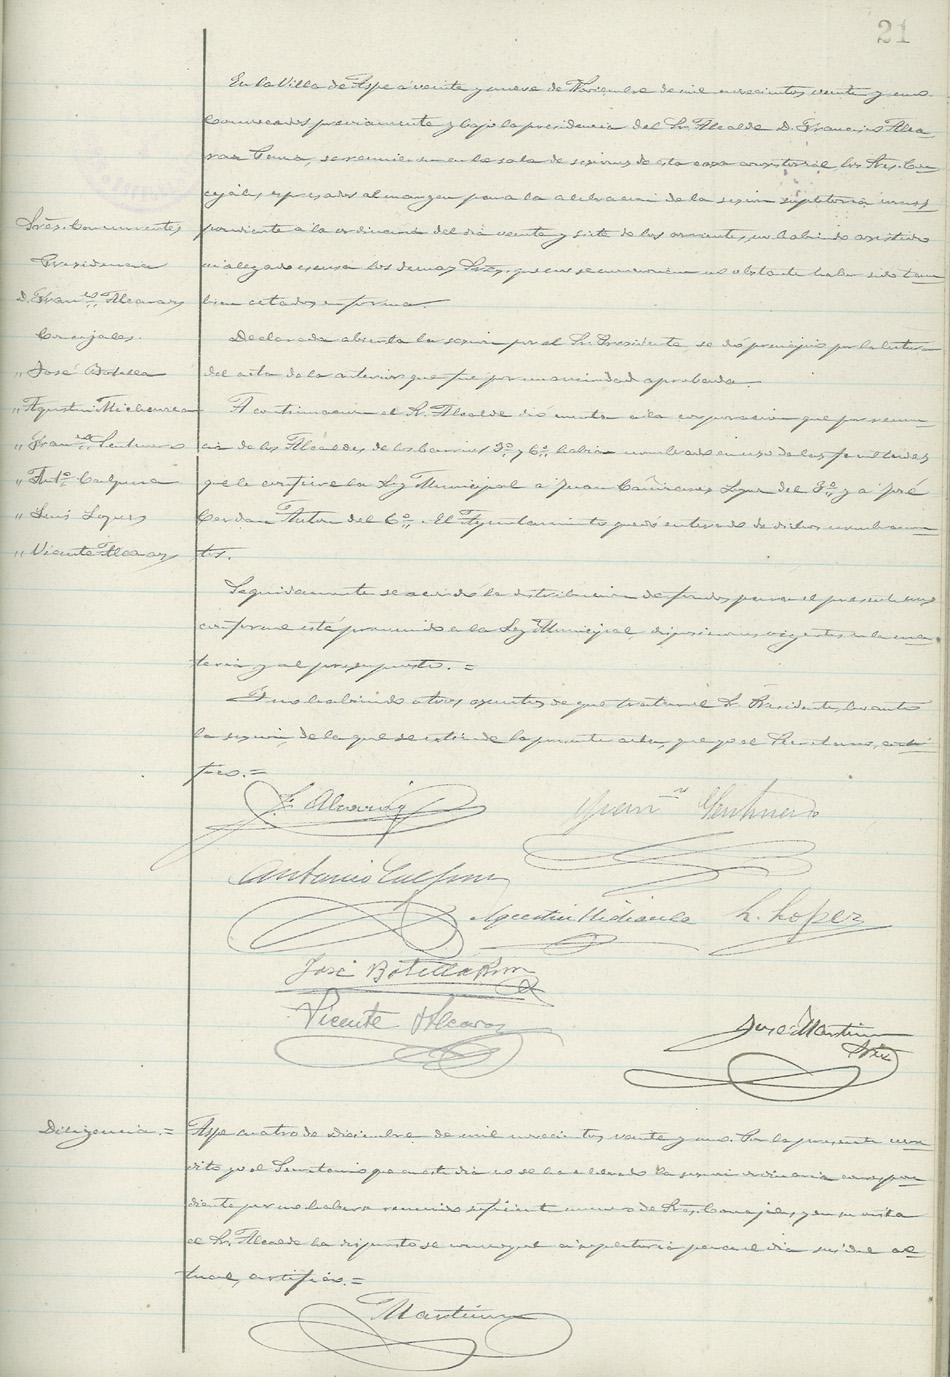 21
En la Villa de Aspe a veinte y nueve de Noviembre de mil novecientos veinte y uno.
Convocados previamente y bajo la presidencia del Sr. Alcalde D. Francisco Alca
raz se reunieron en la sala de sesiones de esta casa consistorial, los Sres. Con
cejales expresados al margen para la celebracion de la sesion supletoria corres
pondiente a la ordinaria del dia veinte y siete de los corrientes, no habiendo asistido
ni alegado escusa los demas Sres. que no se mencionan no obstante haber sido tam
bien citados en forma.
Sres. Concurrentes
Presidencia
D. Franco. Alcaraz
Concejales.
" José Botella
" Agustin
" Franco.
" Anto. Calpena
" Luis Lopez
" Vicente Alcaraz
Declarada abierta la sesion por el Sr. Presidente se dió principio por la lectura
del acta de la anterior que fue por unanimidad aprobada.
A continuacion el Sr. Alcalde dio cuenta a la corporacion que por renun
cia de los Alcaldes de los barrios 3º y 6º habia nombrado en uso de las facultades
que le confiere la Ley Municipal a Juan Cañizares Lopez del 3º y a José
Cerdan Anton del 6º. El Ayuntamiento quedó enterado de dichos nombramien
tos.
Seguidamente se acordó la distribucion de fondos para el presente mes
conforme está prevenido en la Ley Municipal, disposiciones vigentes en la ma
teria y al presupuesto. =
Y no habiendo otros asuntos de que tratar el Sr. Presidente levantó
la sesion, de la que se estiende la presente acta, que yo el Secretario, certi
fico. =
F. Alcaraz
Antonio Calpena
L. Lopez
José Botella
Vicente Alcaraz
José Martinez
Srio
Diligencia. =
Aspe cuatro de Diciembre de mil novecientos veinte y uno. Por la presente acre
dito yo el Secretario que en este dia no se ha celebrado la sesion ordinaria correspon
diente por no haberse reunido suficiente numero de Sres. Concejales, y en su vista
el Sr. Alcalde ha dispuesto se convoque a supletoria para el dia seis del ac
tual, certifico. =
Martinez